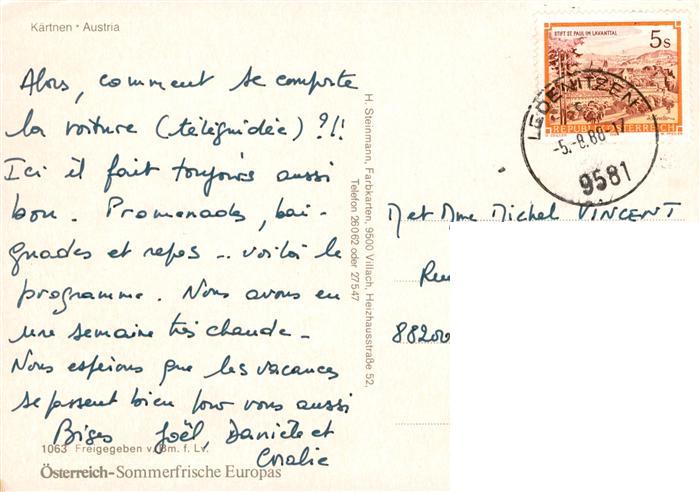 Kärtnen • Austria
Alors, comment se comporte
la voiture (téléguidée) ?!!
Ici il fait toujours aussi
bon. Promenades, bai-
gnades et repos .. voilà le
programme. Nous avons eu
une semaine très chaude.
Nous espérons que les vacances
se passent bien pour vous aussi
Bises Joël, Danièle et
Coralie
1063 Freigegeben v. Bm. f. Lv.
Österreich-Sommerfrische Europas
H. Steinmann, Farbkarten, 9500 Villach, Heizhausstraße 52,
Telefon 26062 oder 27547
STIFT ST. PAUL IM LAVANTTAL
5 S
REPUBLIK ÖSTERREICH
LEDENITZEN
-5.-8.88-17
9581
M et Mme Michel VINCENT
Rue
88200